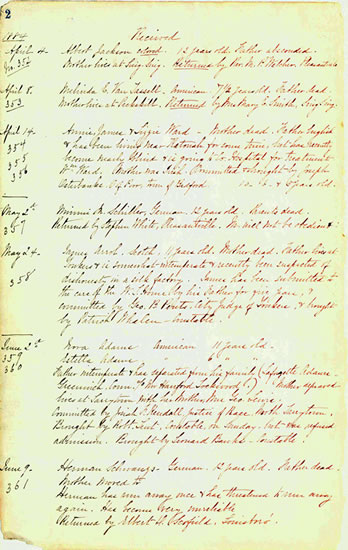 2
1884 Received
April 4. Albert Jackson colored. 12 years old. Father absconded.
352 Mother lives at Sing Sing. Returned by Rev. M. P.
April 8. Melinda C. Van Tassell. American 7½ years old. Father dead.
353 Mother lives at Peekskill. Returned by Mrs Mary C. Smith, Sing Sing.
April 14. Annie, James & Lizzie Ward - Mother dead. Father English
354 & has been living near Katonah for some time, but has recently
355 become nearly blind & is going to Hospital for treatment
356 Wm Ward. Mother was Irish. Committed & brought by Joseph
of Poor, Town of Bedford. 10. 8. & 5 years old.
May 2d Minnie M. Schiller, German. 12 years old. Parents dead.
Returned by Stephen White, Pleasantville. M. will not be obedient.
May 24. James Arrol. Scotch, 11 years old. Mother dead. Father lives at
Yonkers & is somewhat intemperate & recently been suspected of
358 dishonesty in a silk factory. James has been submitted to
the care of the Home by his Father for one year, &
committed by Geo. B. City Judge of Yonkers, & brought
by Patrick Whalen Constable.
June 2d Nora Adams American 11 years old.
359 Estella Adams " 6 " "
360 Father intemperate & has separated from his family (Lafayette Adams
Greenwich, Conn. Hanford Lockwood?). Mother
lives at Tarrytown with her Mother Mrs Geo
Committed by Justice of Peace North Tarrytown.
Brought by Constable, on Sunday, but was refused
admission. Brought by Leonard Constable.
June 9. Herman Schwangs - German. 12 years old. Father dead.
361 Mother moved to
Herman has run away once & has threatened to run away
again. Has become very unreliable
Returned by Albert H.